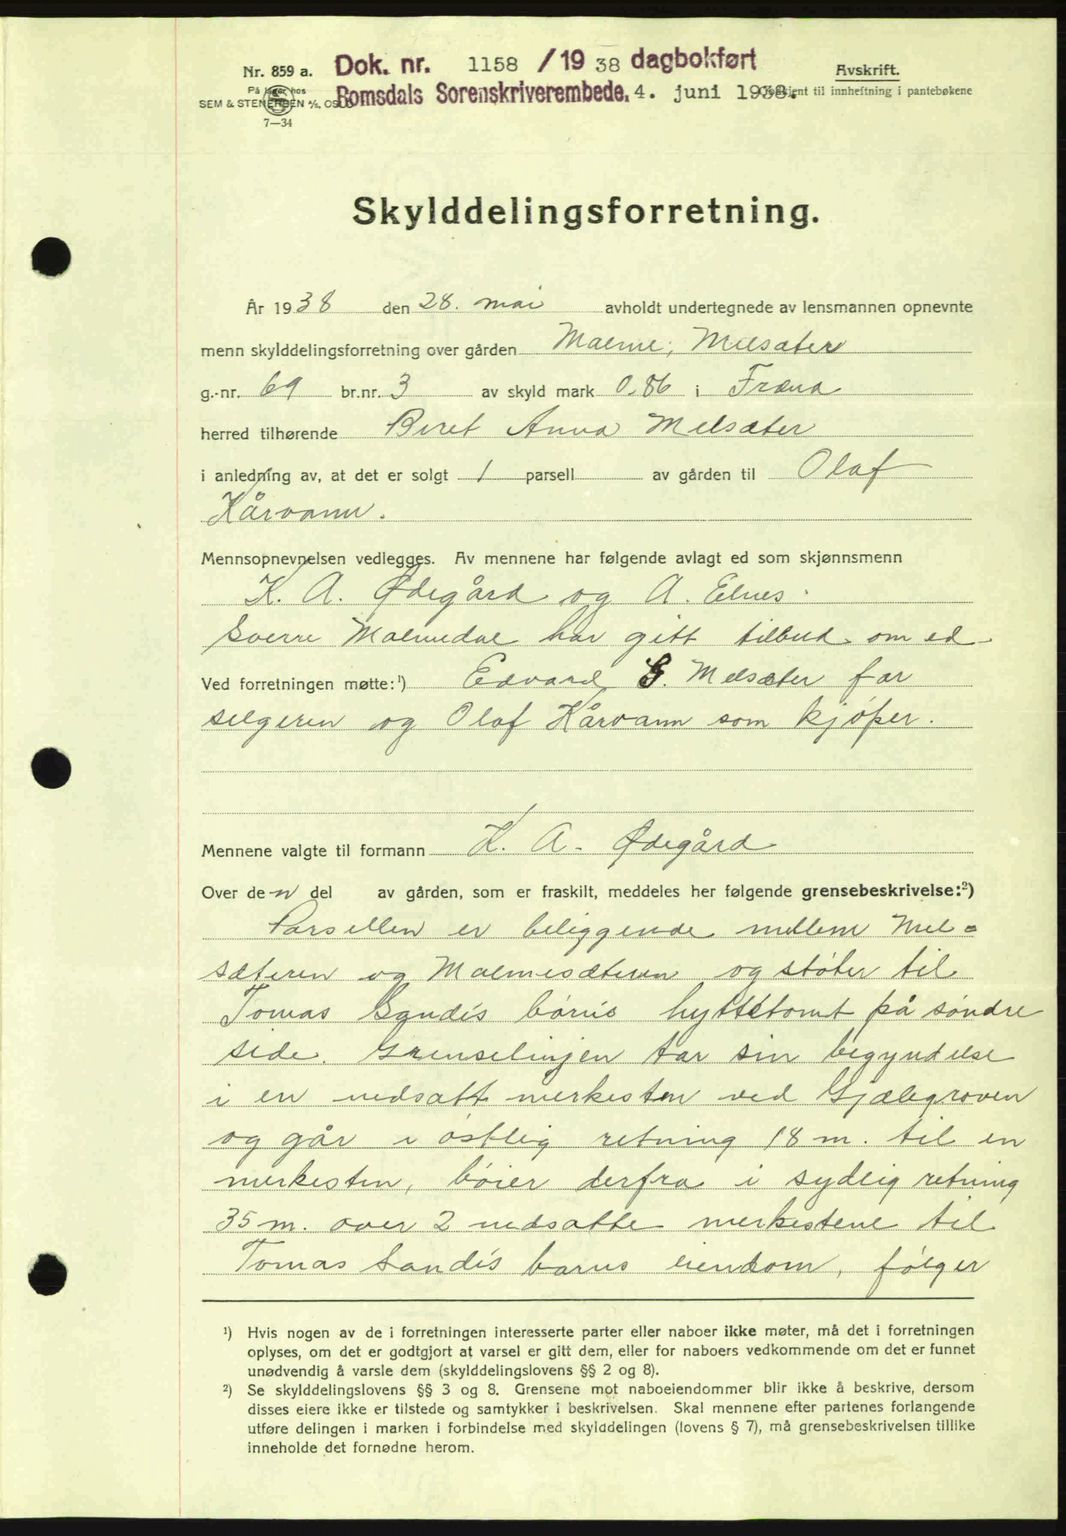 Nr. 859 a.
På lager hos
SEM & STENERSEN A/S, OSLO
7—34
Dok. nr. 1158 / 19 38 dagbokført
Romsdals Sorenskriverembede. 4. juni 1938.
Avskrift.
til innheftning i pantebøkene
Skylddelingsforretning.
År 1938 den 28. mai avholdt undertegnede av lensmannen opnevnte
menn skylddelingsforretning over gården Malme, Melsæter
g.-nr. 69 br.nr. 3 av skyld mark 0.86 i Fræna
herred tilhørende Beret Anna Melsæter
i anledning av, at det er solgt 1 parsell av gården til Olaf
Kårvann.
Mennsopnevnelsen vedlegges. Av mennene har følgende avlagt ed som skjønnsmenn
K. A. Ødegård og A. Elnes.
Sverre Malmedal har gitt tilbud om ed
Ved forretningen møtte:¹) Edvard G. Melsæter for
selgeren og Olaf Kårvann som kjøper.
Mennene valgte til formann K. A. Ødegård
Over de-n del av gården, som er fraskilt, meddeles her følgende grensebeskrivelse:²)
Parsellen er beliggende mellem Mel=
sæteren og Malmesæteren og støter til
Tomas Sandis børns hyttetomt på søndre
side. Grenselinjen tar sin begyndelse
i en nedsatt merkesten ved Gjælegroven
og går i østlig retning 18 m. til en
merkesten, bøier derfra i sydlig retning
35 m. over 2 nedsatte merkestene til
Tomas Sandis barns eiendom, følger
¹) Hvis nogen av de i forretningen interesserte parter eller naboer ikke møter, må det i forretningen
oplyses, om det er godtgjort at varsel er gitt dem, eller for naboers vedkommende om det er funnet
unødvendig å varsle dem (skylddelingslovens §§ 2 og 8).
²) Se skylddelingslovens §§ 3 og 8. Grensene mot naboeiendommer blir ikke å beskrive, dersom
disses eiere ikke er tilstede og samtykker i beskrivelsen. Skal mennene efter partenes forlangende
utføre delingen i marken i forbindelse med skylddelingen (lovens § 7), må grensebeskrivelsen tillike
inneholde det fornødne herom.